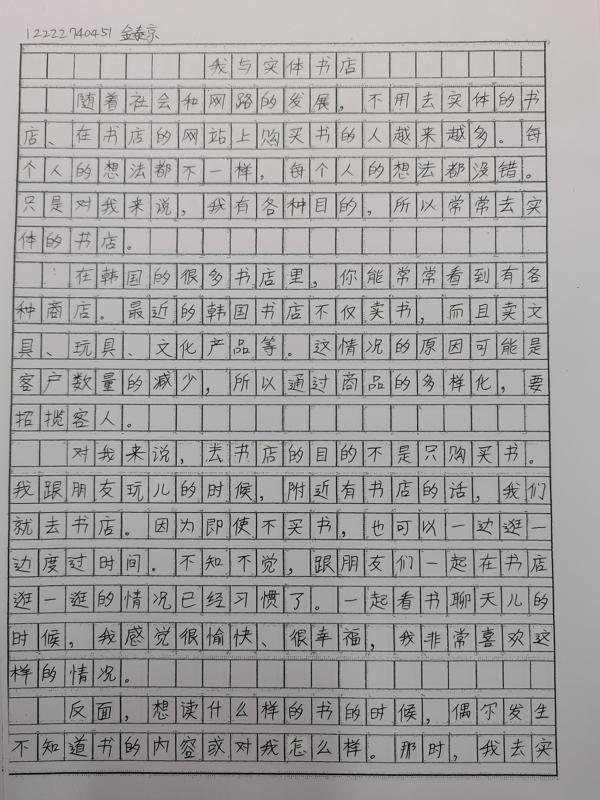 12222740451 金泰京
我与实体书店
随着社会和网路的发展，不用去实体的书
店、在书店的网站上购买书的人越来越多。每
个人的想法都不一样，每个人的想法都没错。
只是对我来说，我有各种目的，所以常常去实
体的书店。
在韩国的很多书店里，你能常常看到有各
种商店。最近的韩国书店不仅卖书，而且卖文
具、玩具、文化产品等。这情况的原因可能是
客户数量的减少，所以通过商品的多样化，要
招揽客人。
对我来说，去书店的目的不是只购买书。
我跟朋友玩儿的时候，附近有书店的话，我们
就去书店。因为即使不买书，也可以一边逛一
边度过时间。不知不觉，跟朋友们一起在书店
逛一逛的情况已经习惯了。一起看书聊天儿的
时候，我感觉很愉快、很幸福，我非常喜欢这
样的情况。
反面，想读什么样的书的时候，偶尔发生
不知道书的内容或对我怎么样。那时，我去实